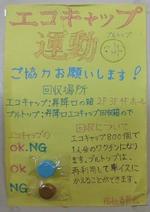 エコキャップ
運動
プルトップ
ご協力お願いします!
回収場所
エコキャップ:昇降口の箱 2F 3F 4Fホール
プルトップ:昇降口エコキャップ回収箱の
回収について
エコキャップの
エコキャップ800個で
1人分のワクチンになり
ます。プルトップは、
再利用して車イスに
かえることができます。
OK NG
OK
NG